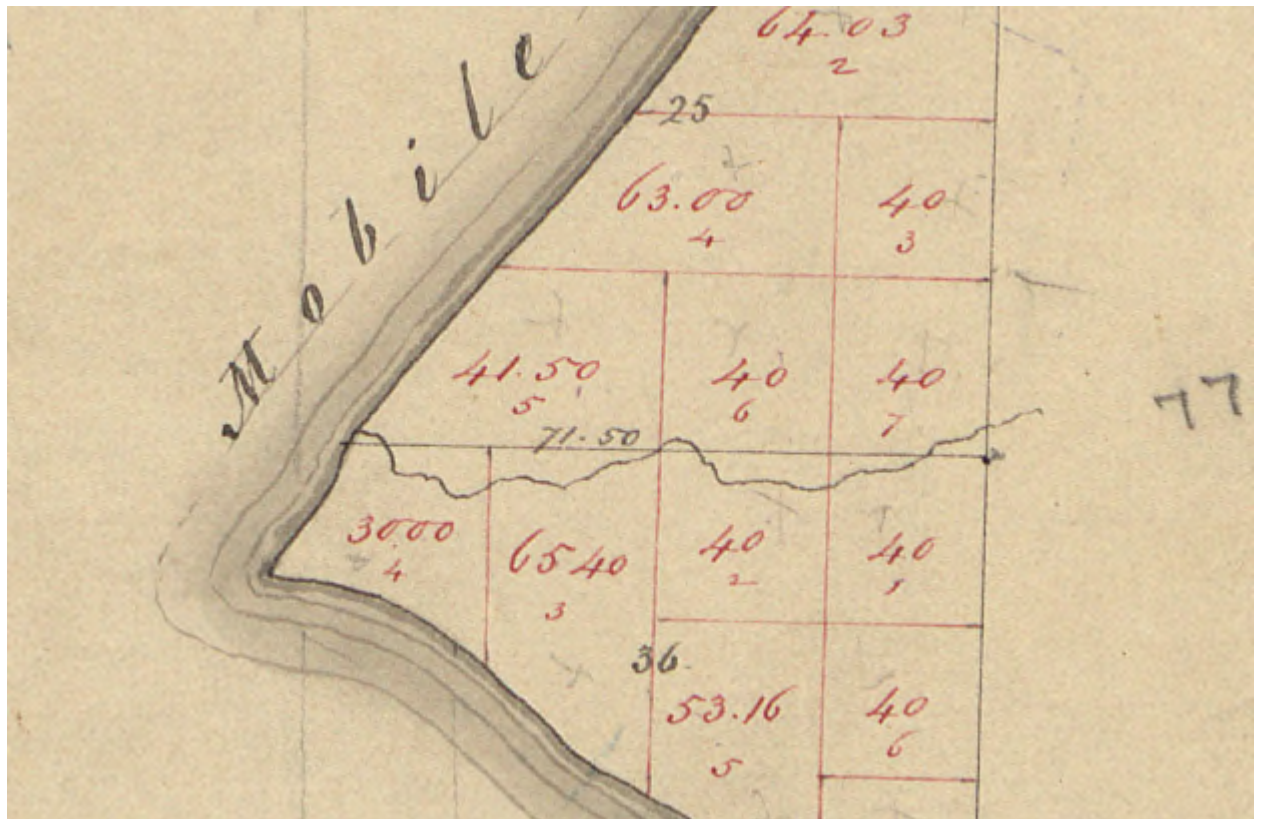 Mobile
64.03
2
25
63.00
4
40
3
41.50
5
40
6
40
7
77
71.50
30.00
4
65 40
3
40
2
40
1
36.
53.16
5
40
6